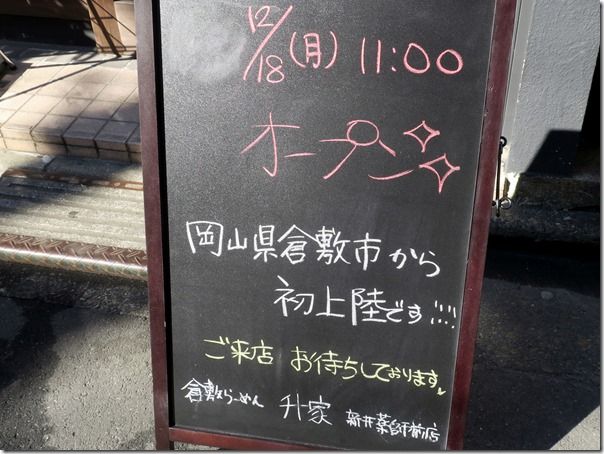 12/18(月) 11:00
オープン
岡山県倉敷市から
初上陸です!!!!
ご来店 お待ちしております
倉敷らーめん 升家 新井薬師前店